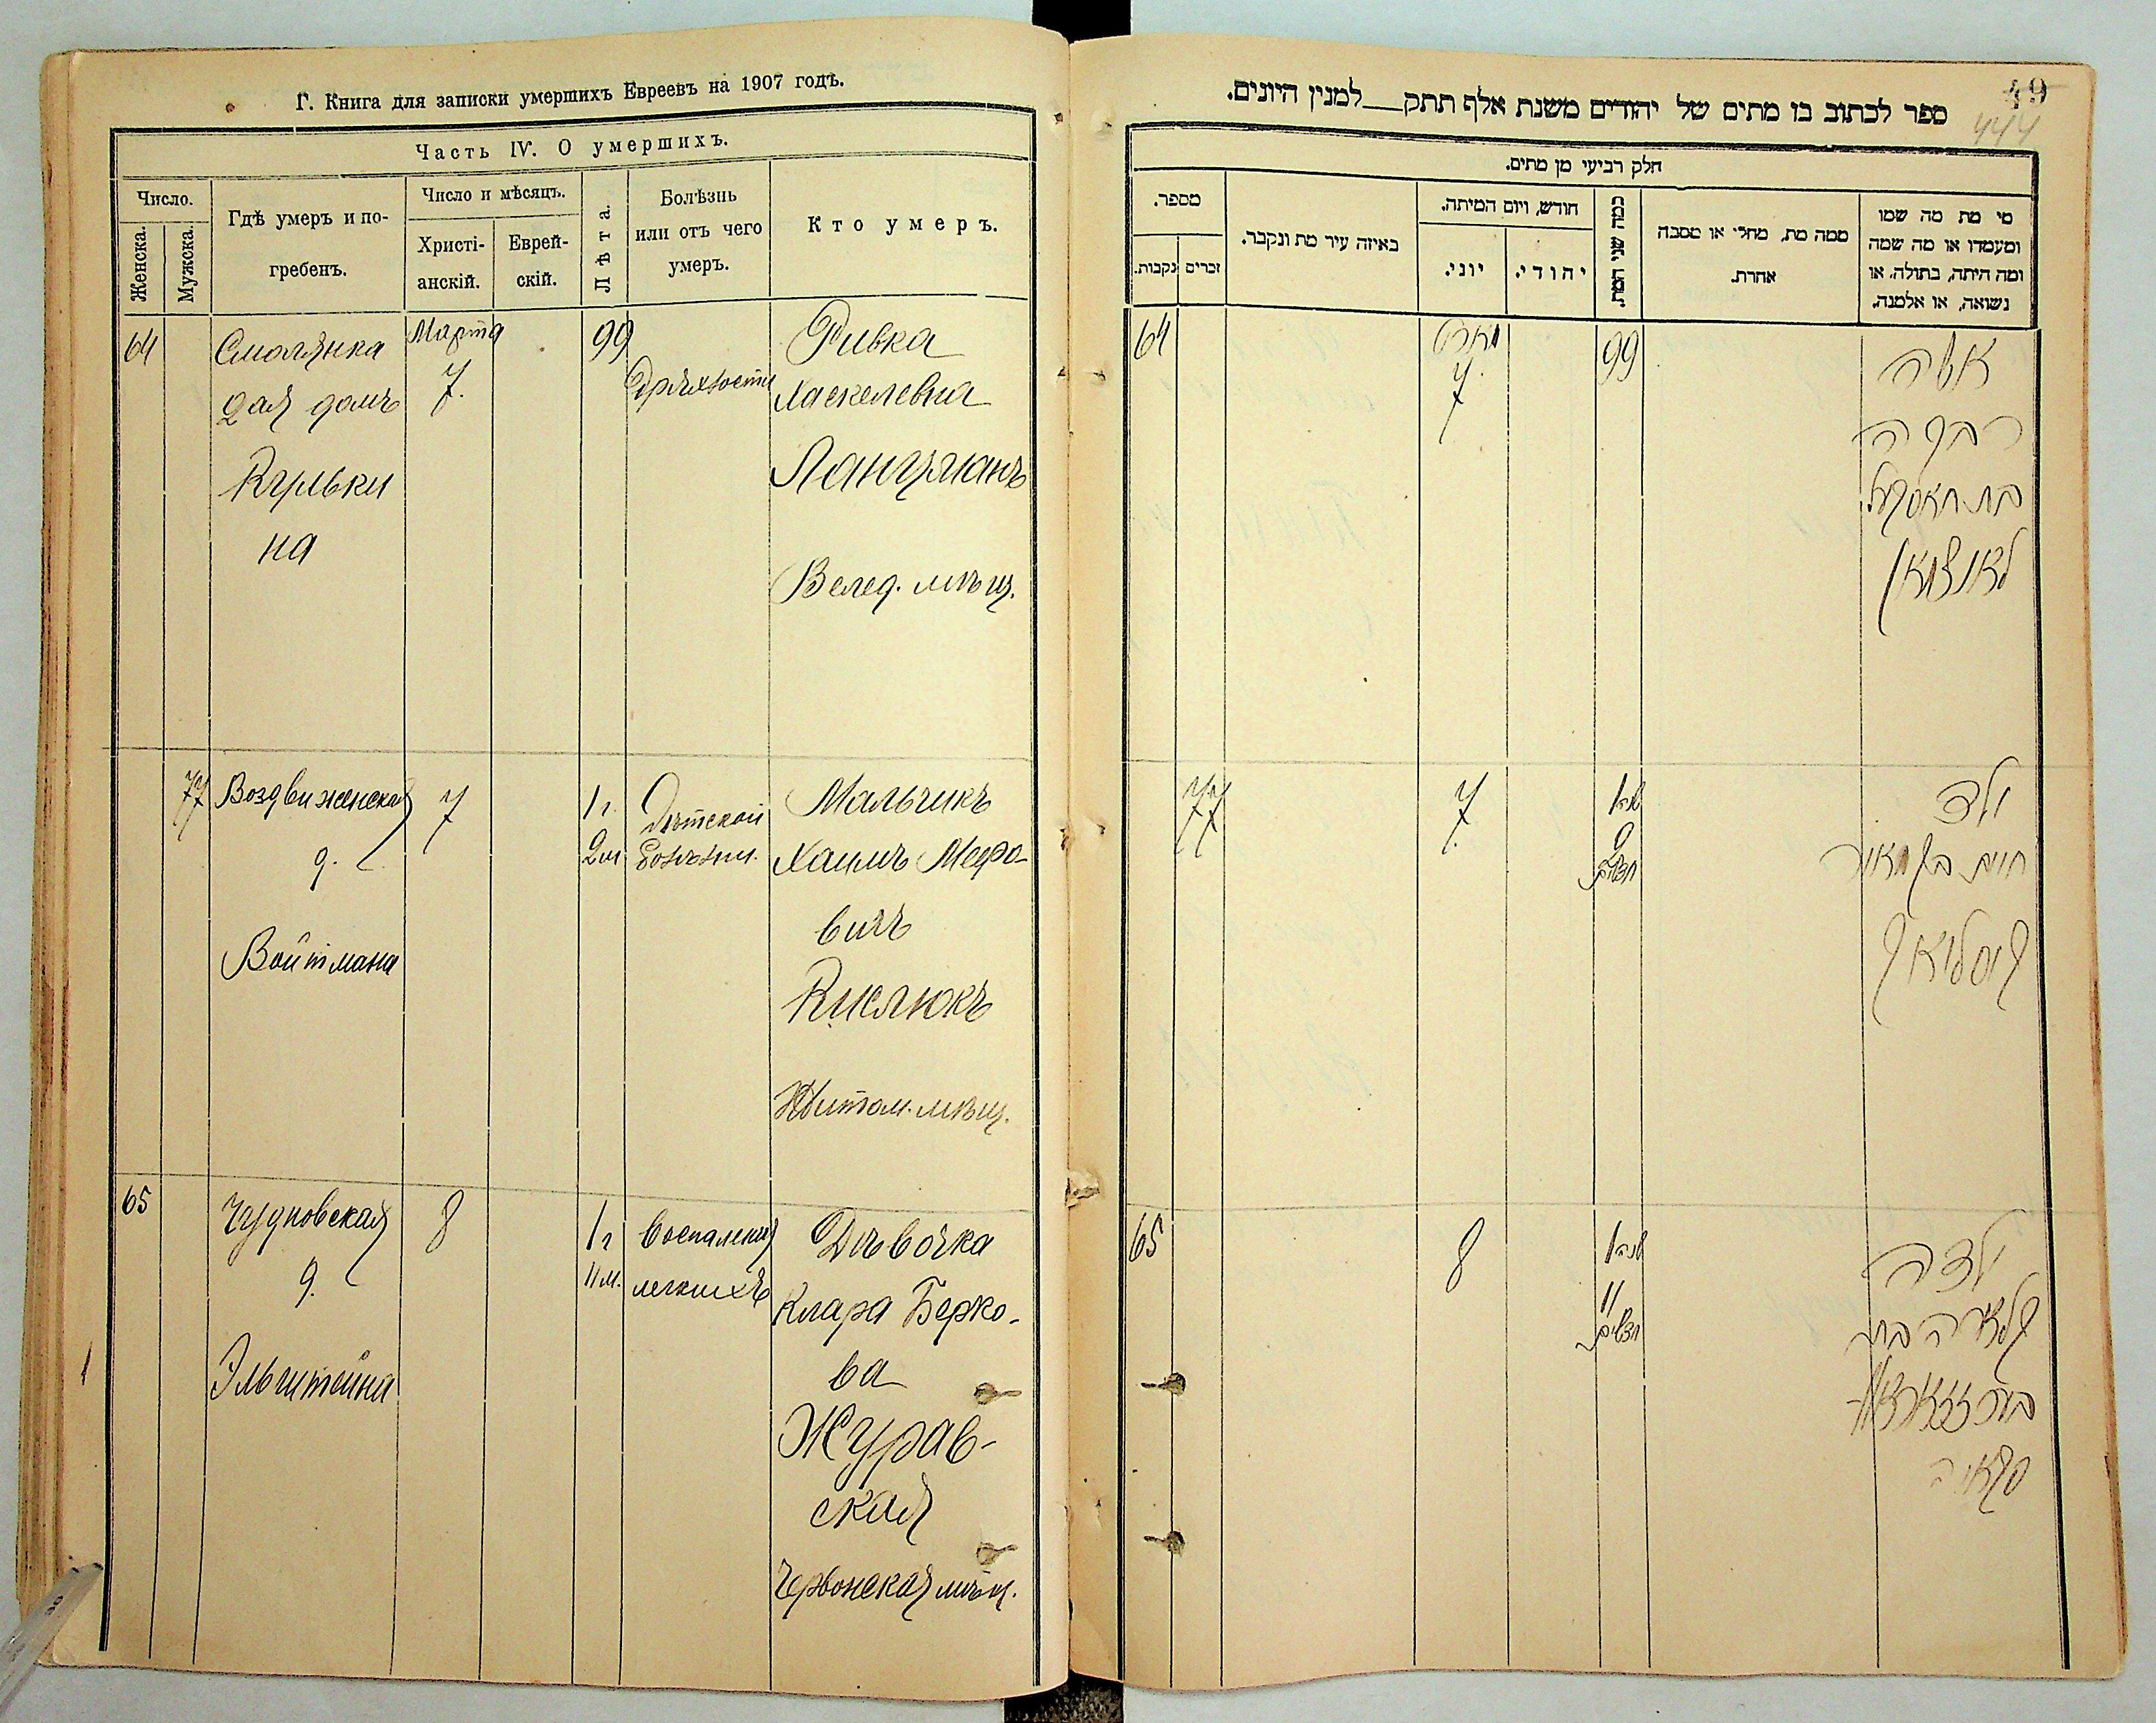 Г. Книга для записки умершихъ Евреевъ на 1907 годъ.
Часть IV. О умершихъ.
Число.
Женска.
Мужска.
Гдѣ умеръ и по-
гребенъ.
Число и мѣсяцъ.
Христі-
анскій.
Еврей-
скій.
Лѣта.
Болѣзнь
или отъ чего
умеръ.
Кто умеръ.
64
Смолянка
дая домъ
Кульки
на
Марта
7.
99
Дряхлости
Ривка
Хаскелевна
Ланцманъ
Велед. мѣщ.
77
Воздвиженская
д.
Войтмана
7
1 г.
2 м.
Дѣтской
болѣзни.
Мальчикъ
Хаимъ Меро-
вичъ
Кислюкъ
Житом. мѣщ.
65
Чудновская
д.
Эльштейна
8
1 г
11 м.
Воспаления
легкихъ
Дѣвочка
Клара Берко-
ва
Журав-
ская
Червонская мѣщ.
49
444
ספר לכתוב בו מתים של יהודים משנת אלף תתק__למנין היונים.
חלק רביעי מן מתים.
מספר.
נקבות.
זכרים
באיזה עיר מת ונקבר.
חודש, ויום המיתה.
יוני.
יהודי.
כמה שני המת.
ממה מת, מחלי או מסבה
אחרת.
מי מת מה שמו
ומעמדו או מה שמה
ומה היתה, בתולה, או
נשואה, או אלמנה.
64
מארט
7.
99
אשה
רבקה
בת חאסקעל
לאנצמאן
77
7.
שנה 1
2
חדשים
ילד
חיים בן מאיר
קיסליוק
65
8
שנה 1
11
חדשים
ילדה
קלארה בת
בערקא
סקאיה